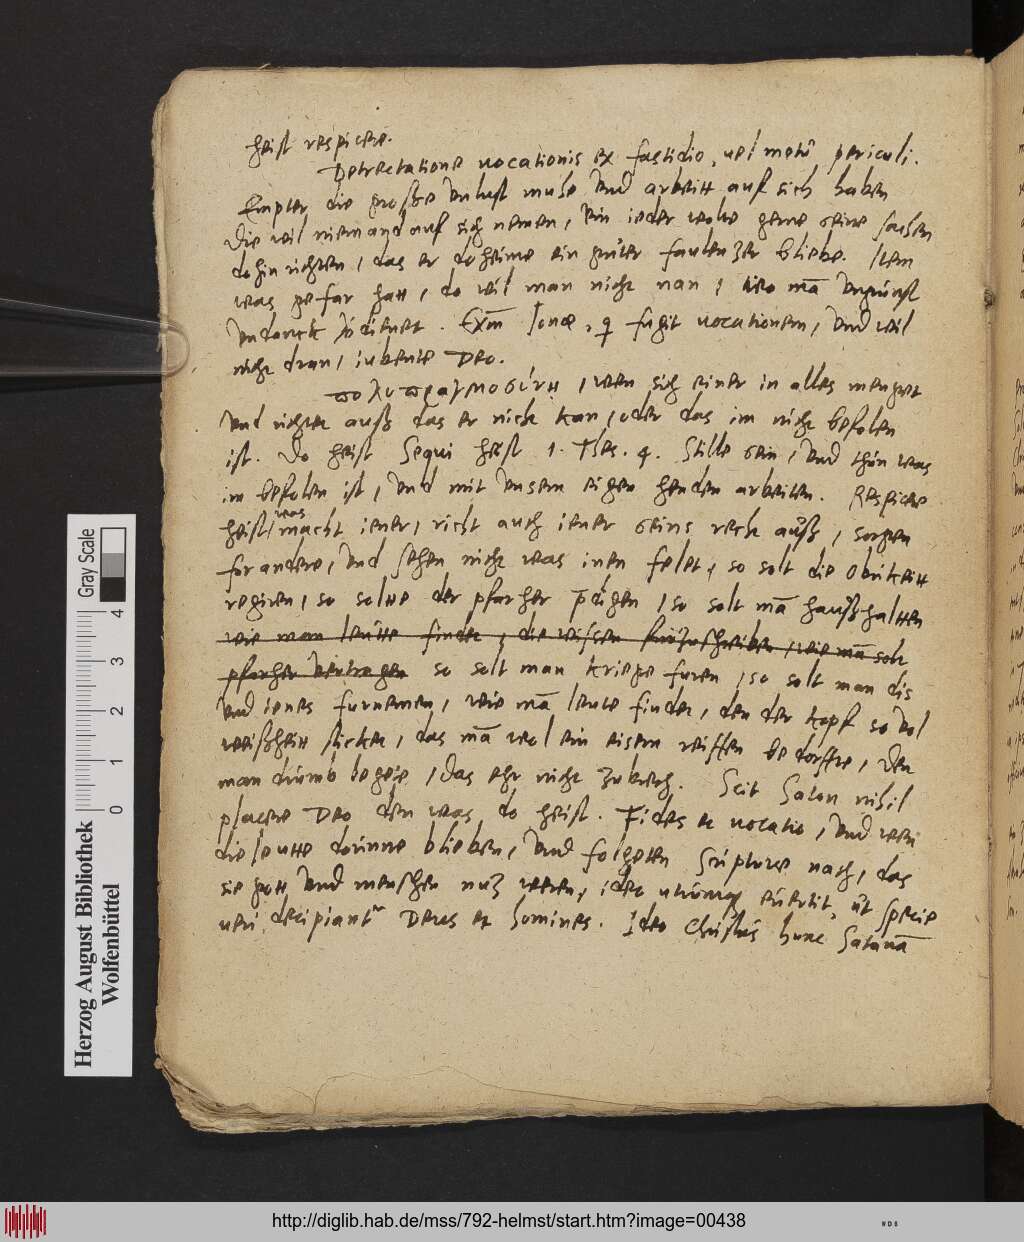 heist respicere.
Detrectatione vocationis ex fastidio, vel metu periculi.
Empter die grosse unlust muhe und arbeitt auf sich haben
die weil niemand auf sich nemen, ein ieder wolte gerne seine sachen
dohin richten, das er doheime ein guter faulenzer bliebe. Item
was gefar hatt, do wil man nicht nan, wo mā ungunst
undanck . Exm Jonæ, q fugit vocationem, und wil
nicht dran, iubente Deo.
πολυπραγμοσύνη, wen sich einer in alles menget
und richtet auß das er nicht kan, oder das im nicht befolen
ist. Do heist Sequi heist 1. Tes. 4. Stille sein, und thun was
im befolen ist, und mit unsern eigen henden arbeiten. Respicere
heist, was macht iener, richt auch iener seins recht auß, sorgen
for andere, und sehen nicht was inen felet, so solt die obrikeitt
regiren, so solte der pfarher pdigen, so solt mā haußhalten
wie man leutte findet, die wissen furzuschreiben, wie mā solt
pfarher so solt man kriege furen, so solt man dis
und ienes furnemen, wie mā leute findet, den der kopf so vol
weißheitt sticket, das mā wol ein eisern reiffen bedorfte, den
man drumb legete, das ehr nicht zubrech. Scit Satan nihil
placere Deo den was do heist. Fides et vocatio, und wen
die leutte dorinne blieben, und folgeten Scripturæ nach, das
sie gott und menschen nuz weren, ideo utrumq evertit, ut specie
veri decipiantr Deus et homines. Ideo Christus hunc Satanā
Herzog August Bibliothek
Wolfenbüttel
Gray Scale
0 1 2 3 4
http://diglib.hab.de/mss/792-helmst/start.htm?image=00438